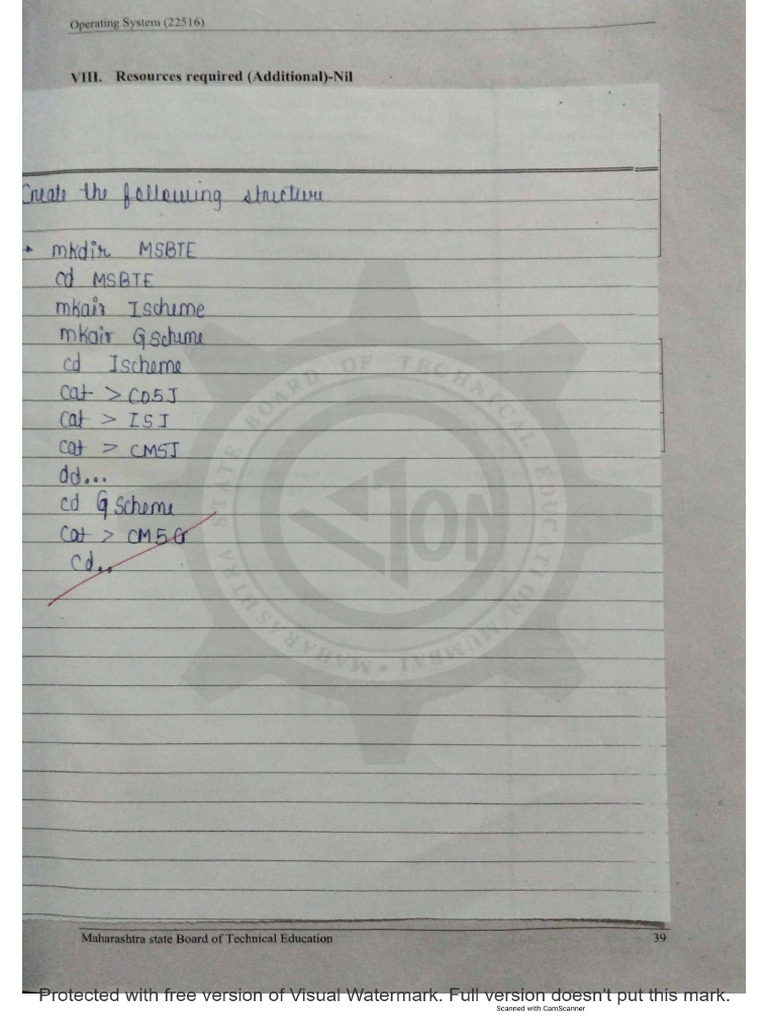 Operating System (22516)
VIII. Resources required (Additional)-Nil
Create the following structure
mkdir MSBTE
cd MSBTE
mkair Ischeme
mkair Gscheme
cd Ischeme
cat > CO5I
cat > ISI
cat > CM5I
dd...
cd G Scheme
cat > CM5G
cd..
MAHARASHTRA STATE BOARD OF TECHNICAL EDUCATION/MUMBAI
Maharashtra state Board of Technical Education 39
Protected with free version of Visual Watermark. Full version doesn't put this mark.
Scanned with CamScanner